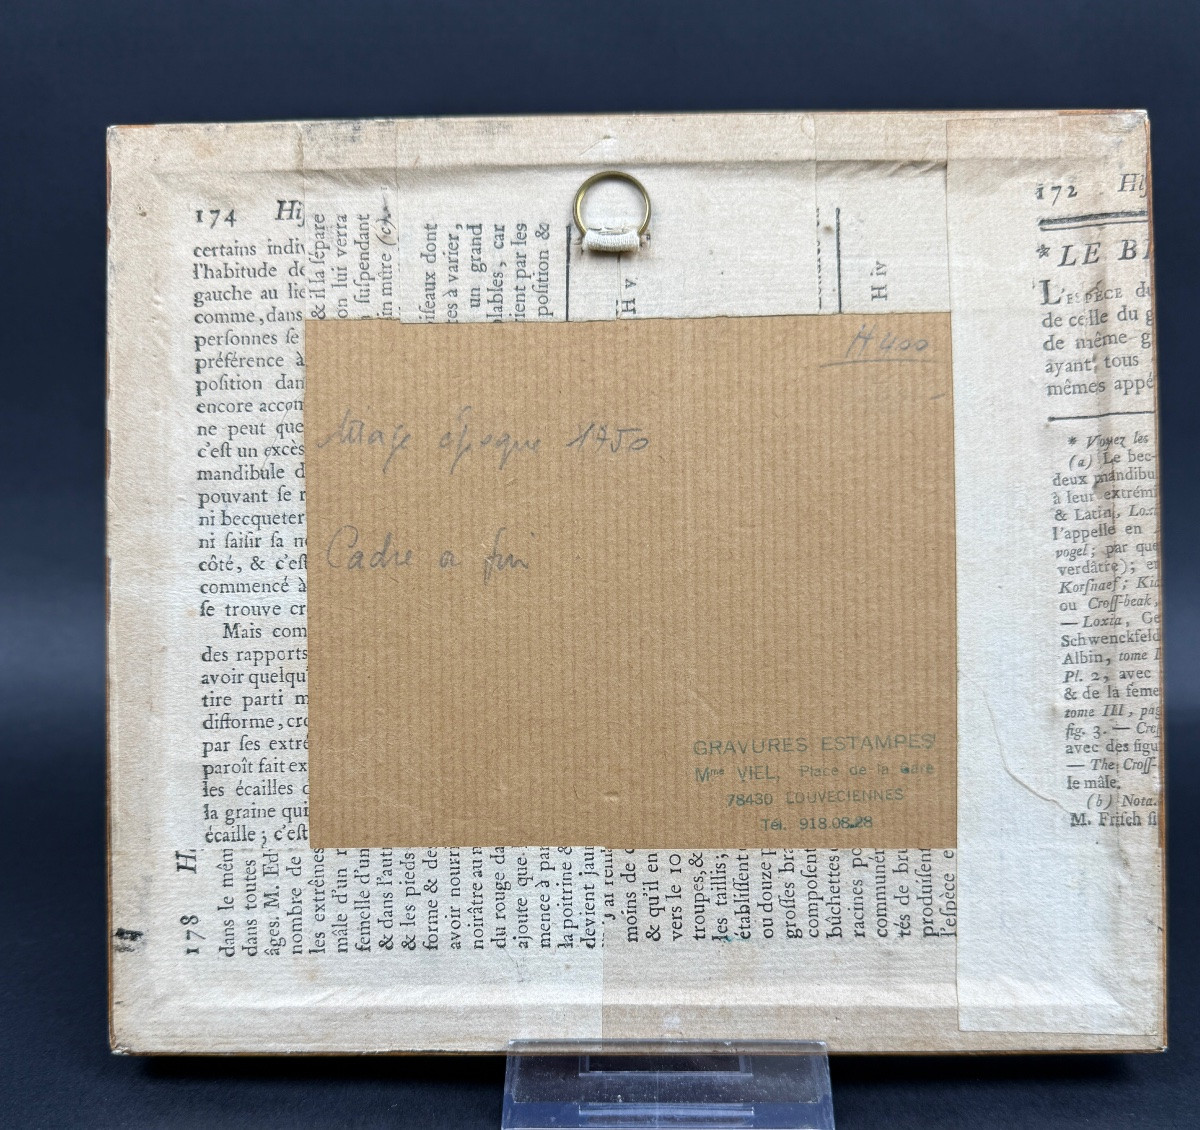 174 Hi
certains indiv
l'habitude de
gauche au lie
comme, dans
perſonnes ſe
préférence à
poſition dan
encore accon
ne peut que
c'eſt un excès
mandibule d
pouvant ſe r
ni becqueter
ni ſaiſir ſa n
côté, & c'eſt
commencé à
ſe trouve cr
Mais com
des rapports
avoir quelqu'
tire parti m
difforme, cro
par ſes extré
paroît fait ex
les écailles c
la graine qui
écaille; c'eſt
& il la ſépare
on lui verra
ſuſpendant
in mûre (c).
iſeaux dont
tes à varier,
un grand
lables, car
ient par les
poſition &
H v
H iv
172 Hiſ
* LE BE
L'ESPÈCE du
de celle du g
de même g
ayant tous
mêmes appé
* Voyez les
(a) Le bec-
deux mandibu
à leur extrémi
& Latin, Lox
l'appelle en
vogel; par que
verdâtre); en
Korſnaef; Kia
ou Croſſ-beak,
— Loxia, Ge
Schwenckfeld
Albin, tome I
Pl. 2, avec
& de la feme
tome III, pag
fig. 3. — Croſ
avec des figu
— The Croſſ-
le mâle.
(b) Nota.
M. Friſch ſi
H 400
Tirage époque 1750
Cadre a fini
GRAVURES ESTAMPES
Mme VIEL, Place de la Gare
78430 LOUVECIENNES
Tél. 918.08.28
178 H
dans le mêm
dans toutes
âges. M. Ed
nombre de
les extrêmes
mâle d'un r
femelle d'un
& dans l'aut
& les pieds
forme & de
avoir nourri
noirâtre au m
du rouge da
ajoute que
mence à par
la poitrine &
devient jaun
j'ai rema
moins de c
& qu'il en
vers le 10
troupes, &
les taillis;
établiſſent
ou douze p
groſſes bra
compoſent
bûchettes
racines po
commune
tés de bru
produiſent
l'eſpèce e